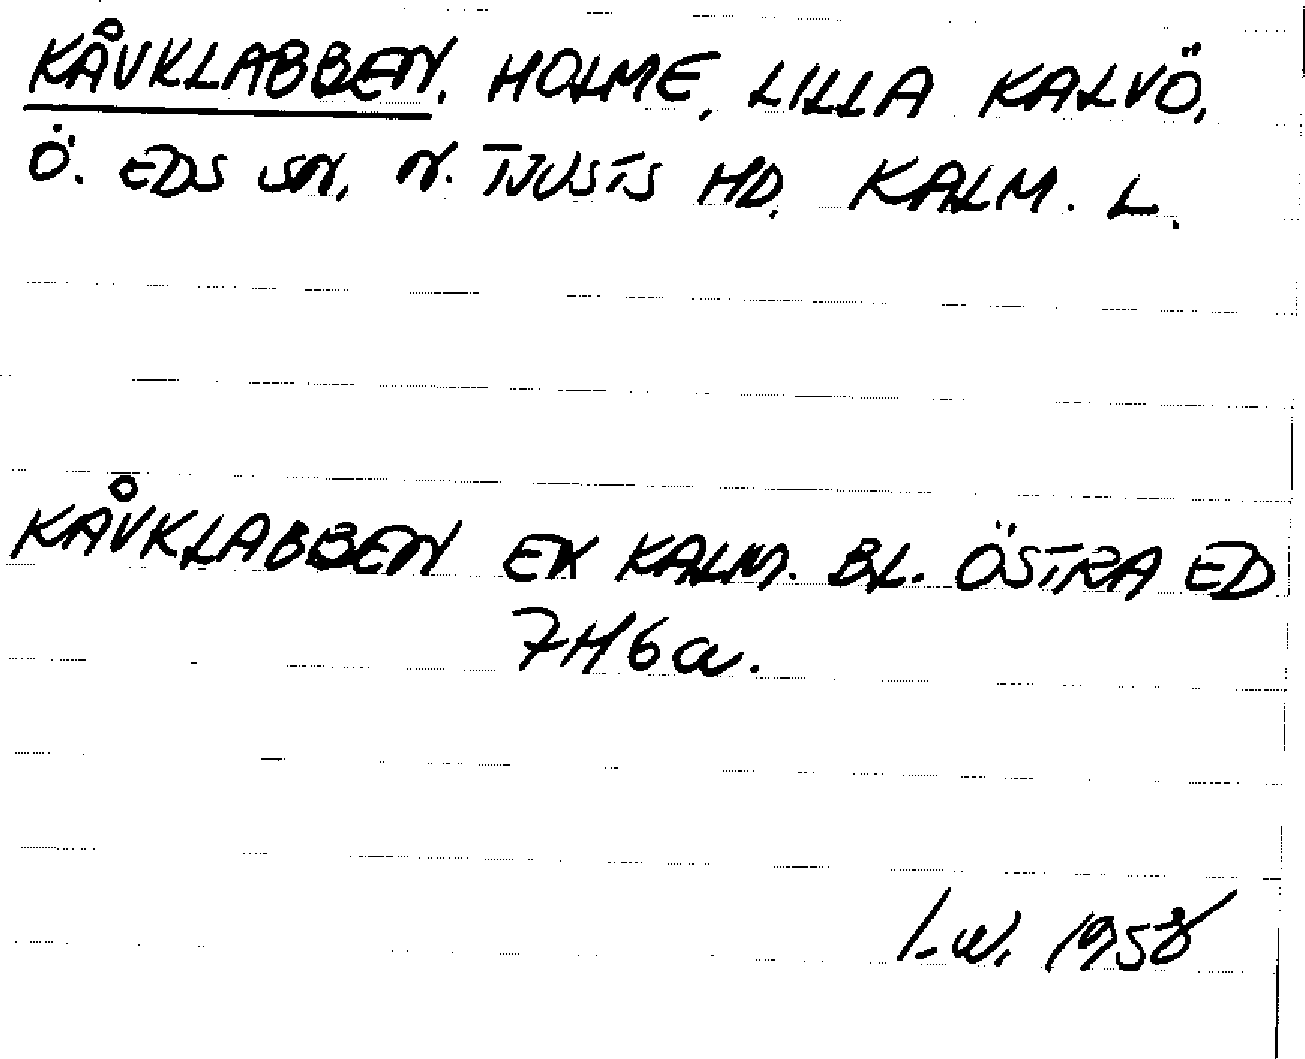 KÅVKLABBEN, HOLME, LILLA KALVÖ,
Ö. EDS SN, N. TJUSTS HD, KALM. L.
KÅVKLABBEN EK KALM. BL. ÖSTRA ED
7H6a.
I.W. 1958